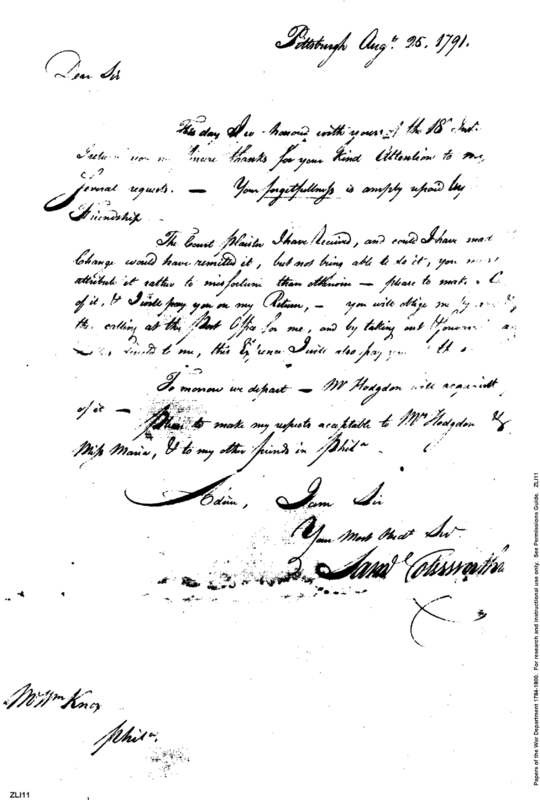 Pittsburgh Augt. 25. 1791.
Dear Sir
This day I was honour'd with yours of the 18 Inst.
I return you my sincere thanks for your Kind Attention to my
several requests. — Your forgetfullness is amply repaid by
Friendship
The Court Plaister I have Received, and could I have mad
Change would have remitted it, but not being able to do it, you must
attribute it rather to misfortune than otherwise — please to make a
of it, & I will pay you on my Return, — you will oblige me by
the calling at the Post Office for me, and by taking out
to me, this Expence I will also pay you
To morrow we depart — Mr Hodgdon will acquaint
of it — please to make my respects acceptable to Mrs Hodgdon &
Miss Maria, & to my other friends in Phila.
Adieu, I am Sir
Your Most Obedt Sert
Saml Cotesworth
Mr Wm Knox
Phila.
ZLI11
Papers of the War Department 1784-1800. For research and instructional use only. See Permissions Guide. ZLI11